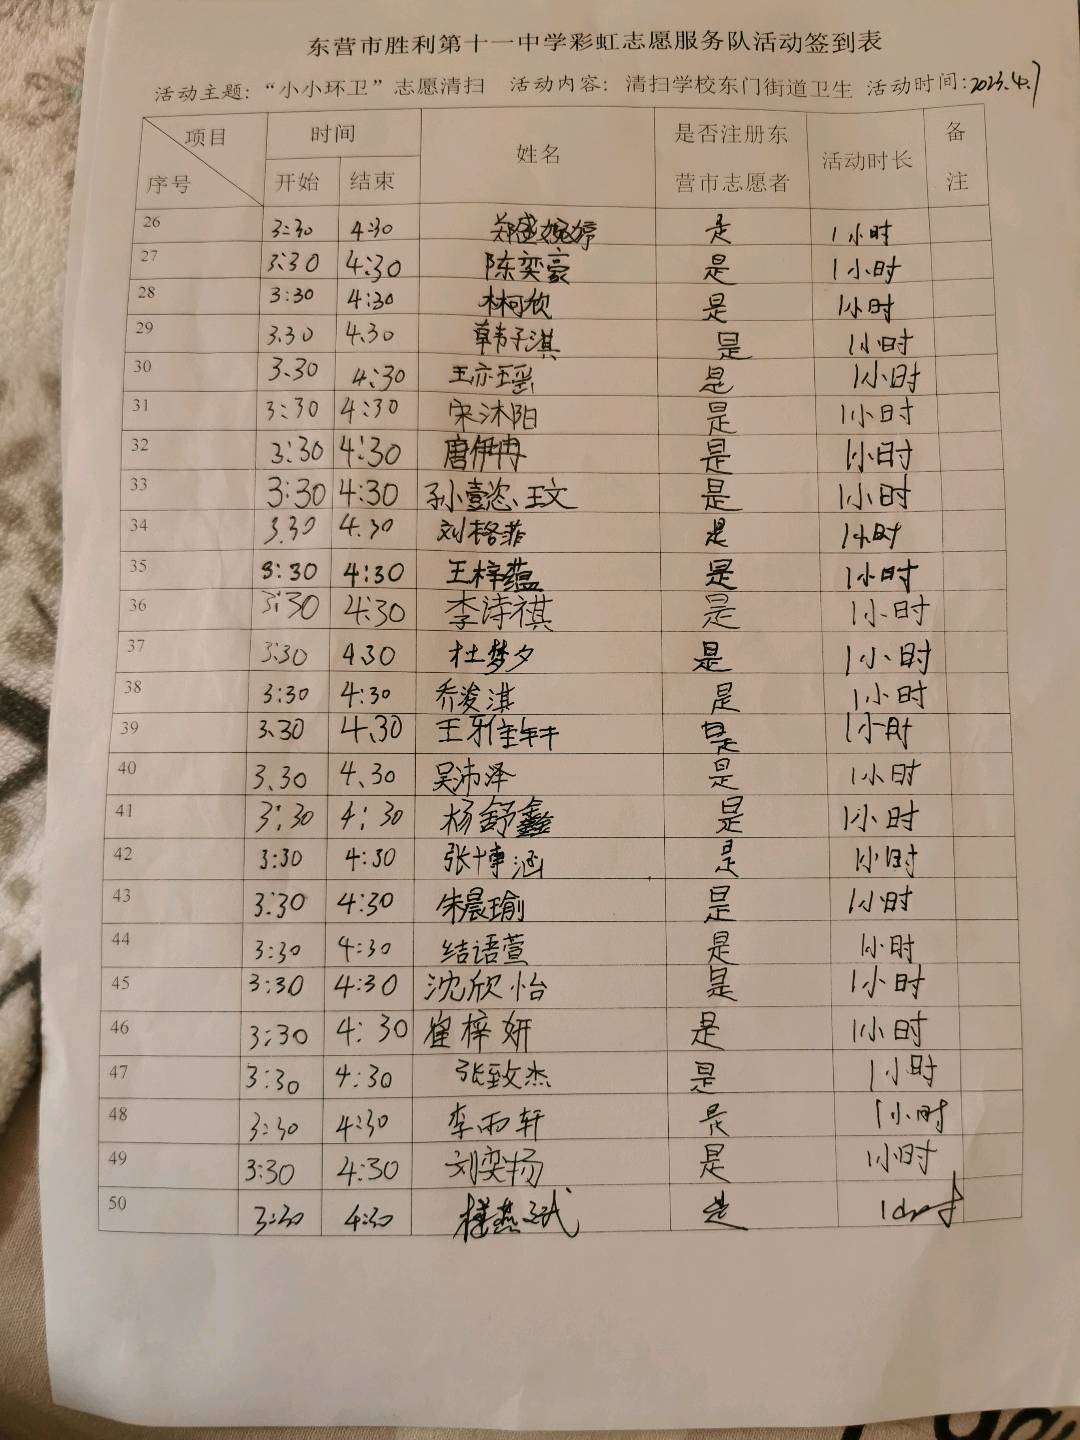 东营市胜利第十一中学彩虹志愿服务队活动签到表
活动主题:“小小环卫”志愿清扫 活动内容: 清扫学校东门街道卫生 活动时间:2023.4.7
项目 时间 姓名 是否注册东营市志愿者 活动时长 备注
序号 开始 结束
26 3:30 4:30 郑盛婉婷 是 1小时
27 3:30 4:30 陈奕豪 是 1小时
28 3:30 4:30 林可欣 是 1小时
29 3.30 4.30 韩子淇 是 1小时
30 3.30 4:30 王亦瑶 是 1小时
31 3:30 4:30 宋沐阳 是 1小时
32 3:30 4:30 唐伊冉 是 1小时
33 3:30 4:30 孙壹恣、王文 是 1小时
34 3.30 4.30 刘格菲 是 1小时
35 3:30 4:30 王梓蕴 是 1小时
36 3:30 4:30 李诗祺 是 1小时
37 3:30 4:30 杜梦夕 是 1小时
38 3:30 4:30 乔浚淇 是 1小时
39 3.30 4.30 王雅轩 是 1小时
40 3.30 4.30 吴沛泽 是 1小时
41 3:30 4:30 杨舒鑫 是 1小时
42 3:30 4:30 张博涵 是 1小时
43 3:30 4:30 朱晨瑜 是 1小时
44 3:30 4:30 结语萱 是 1小时
45 3:30 4:30 沈欣怡 是 1小时
46 3:30 4:30 崔梓妍 是 1小时
47 3:30 4:30 张致杰 是 1小时
48 3:30 4:30 李雨轩 是 1小时
49 3:30 4:30 刘奕扬 是 1小时
50 3:30 4:30 是 1小时